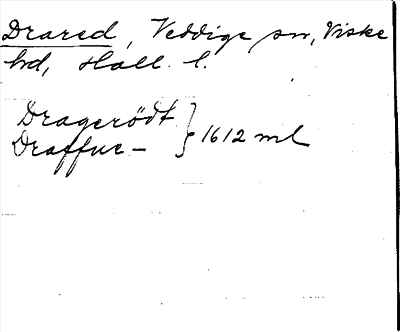 Drared, Veddige sn, Viske
hd, Hall. l.
Dragerödt } 1612 ml
Draffue -